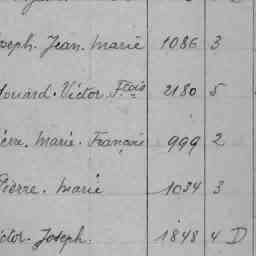 oseph. Jean. Marie 1086 3
douard. Victor. Fçois 2180 5
ierre. Marie. François 999 2
Pierre. Marie 1034 3
ictor. Joseph. 1848 4 D